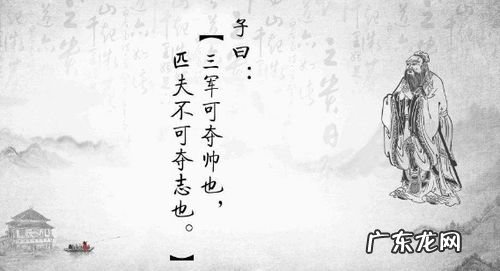 子曰：
【三军可夺帅也，
匹夫不可夺志也。】
广东龙网